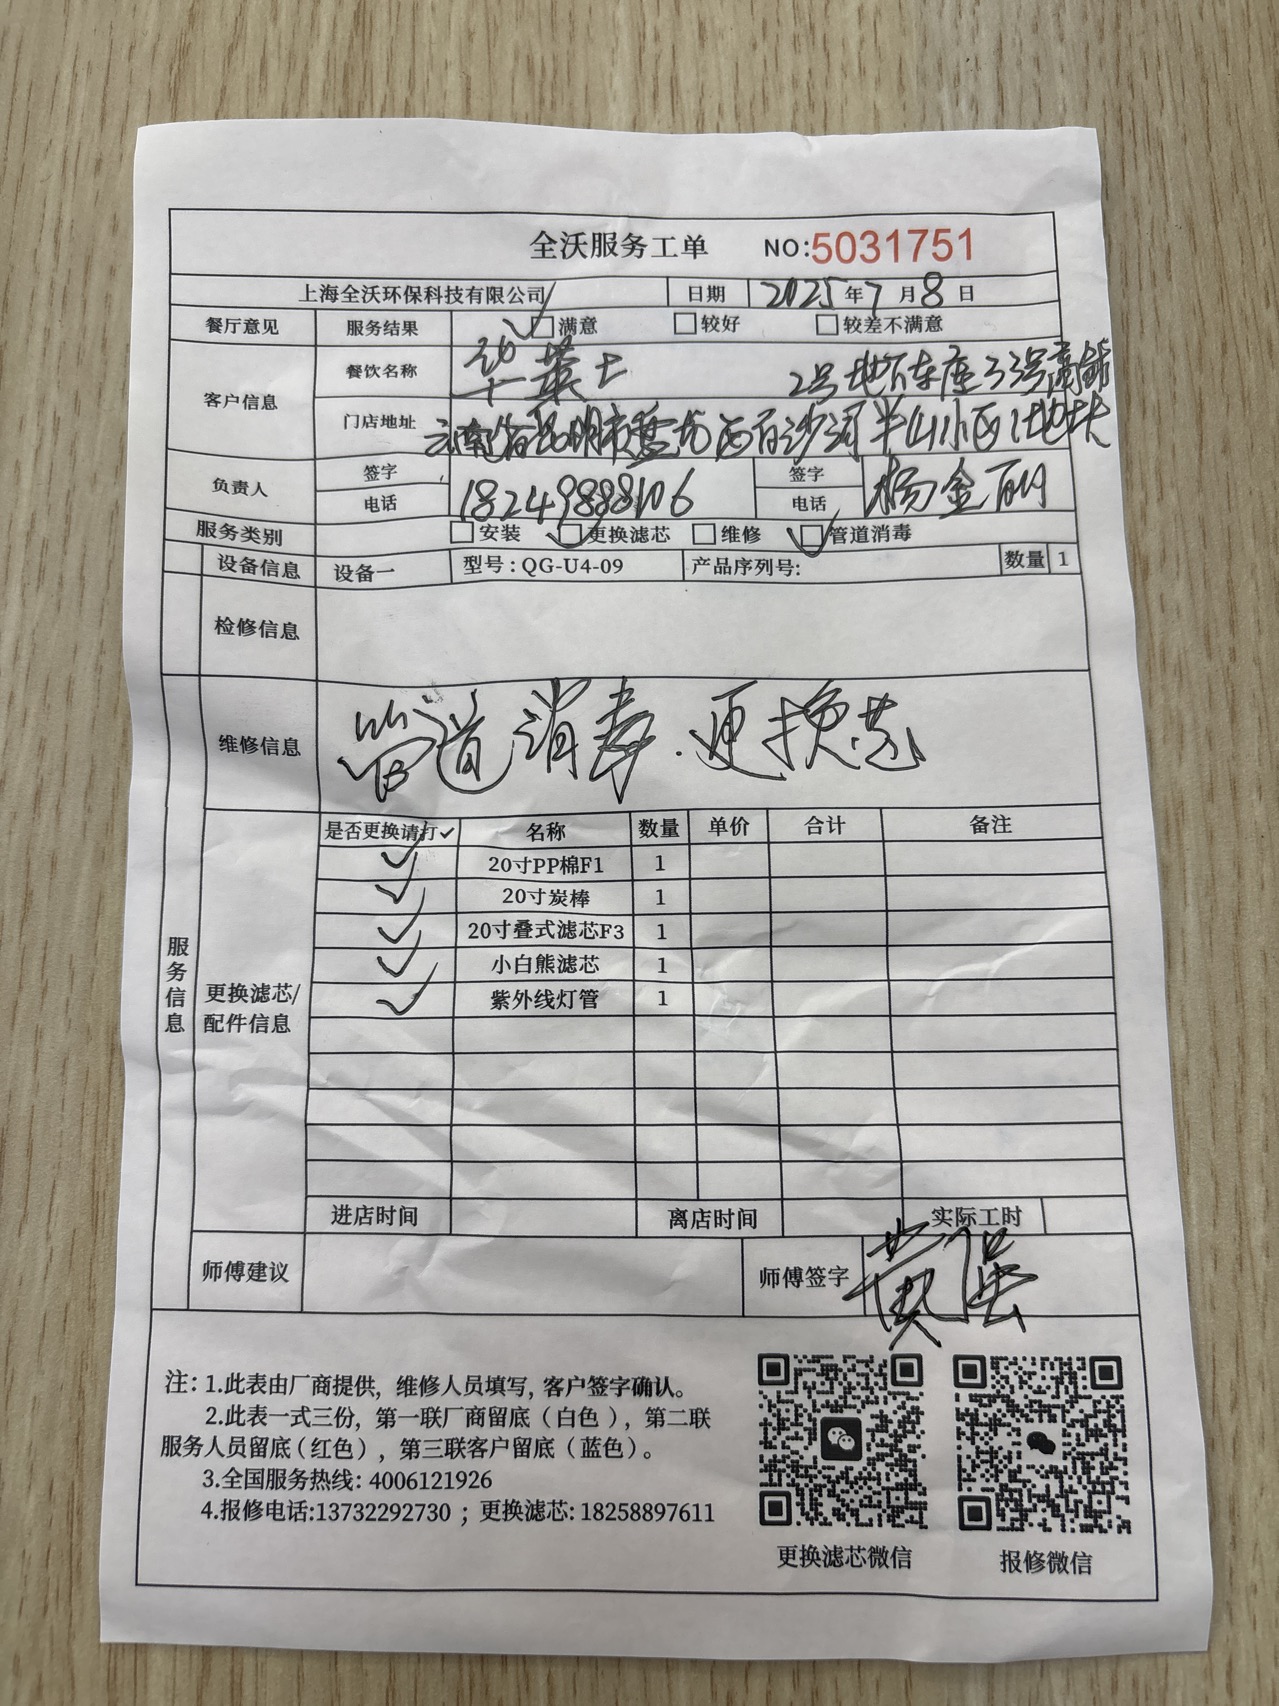 全沃服务工单 NO:5031751
上海全沃环保科技有限公司 日期 2025年7月8日
餐厅意见 服务结果 ✓□满意 □较好 □较差不满意
客户信息 餐饮名称 华莱士 2号地下车库33号商铺
门店地址 云南省昆明市盘龙区白沙河半山小区1地块
负责人 签字 签字 杨金丽
电话 18249888106 电话
服务类别 □安装 ✓□更换滤芯 □维修 ✓□管道消毒
设备信息 设备一 型号:QG-U4-09 产品序列号: 数量 1
检修信息
维修信息 管道消毒.更换芯
服务信息
更换滤芯/配件信息
是否更换请打✓ 名称 数量 单价 合计 备注
✓ 20寸PP棉F1 1
✓ 20寸炭棒 1
✓ 20寸叠式滤芯F3 1
✓ 小白熊滤芯 1
✓ 紫外线灯管 1
进店时间 离店时间 实际工时
师傅建议 师傅签字 黄
注: 1.此表由厂商提供, 维修人员填写, 客户签字确认。
2.此表一式三份, 第一联厂商留底(白色), 第二联
服务人员留底(红色), 第三联客户留底(蓝色)。
3.全国服务热线: 4006121926
4.报修电话:13732292730 ; 更换滤芯: 18258897611
更换滤芯微信 报修微信